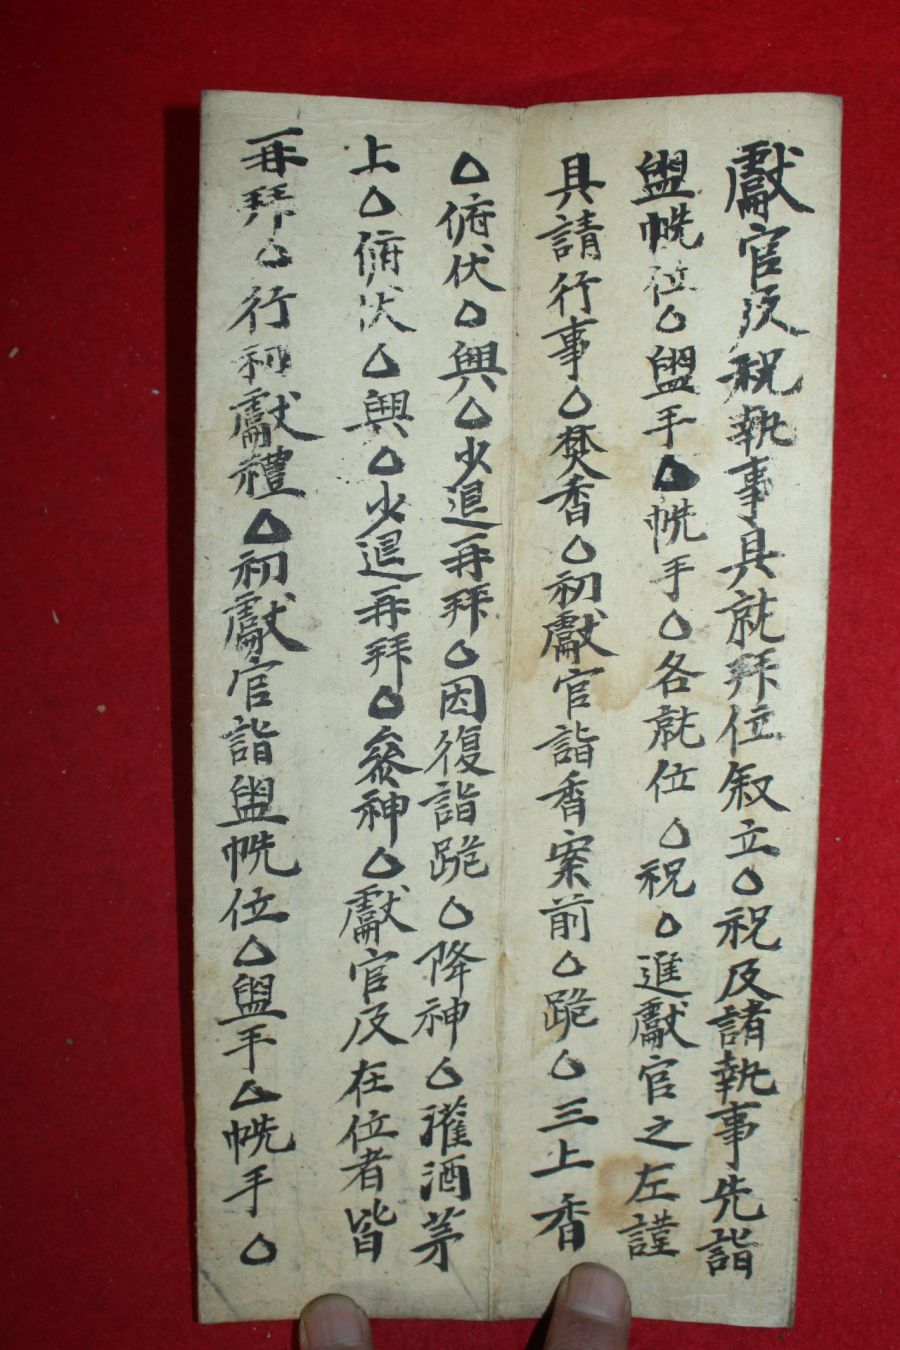 獻官及祝執事具就拜位叙立△祝及諸執事先詣
盥帨位△盥手△帨手△各就位△祝△進獻官之左謹
具請行事△焚香△初獻官詣香案前△跪△三上香
△俯伏△興△少退再拜△因復詣跪△降神△灌酒茅
上△俯伏△興△少退再拜△叅神△獻官及在位者皆
再拜△行初獻禮△初獻官詣盥帨位△盥手△帨手△